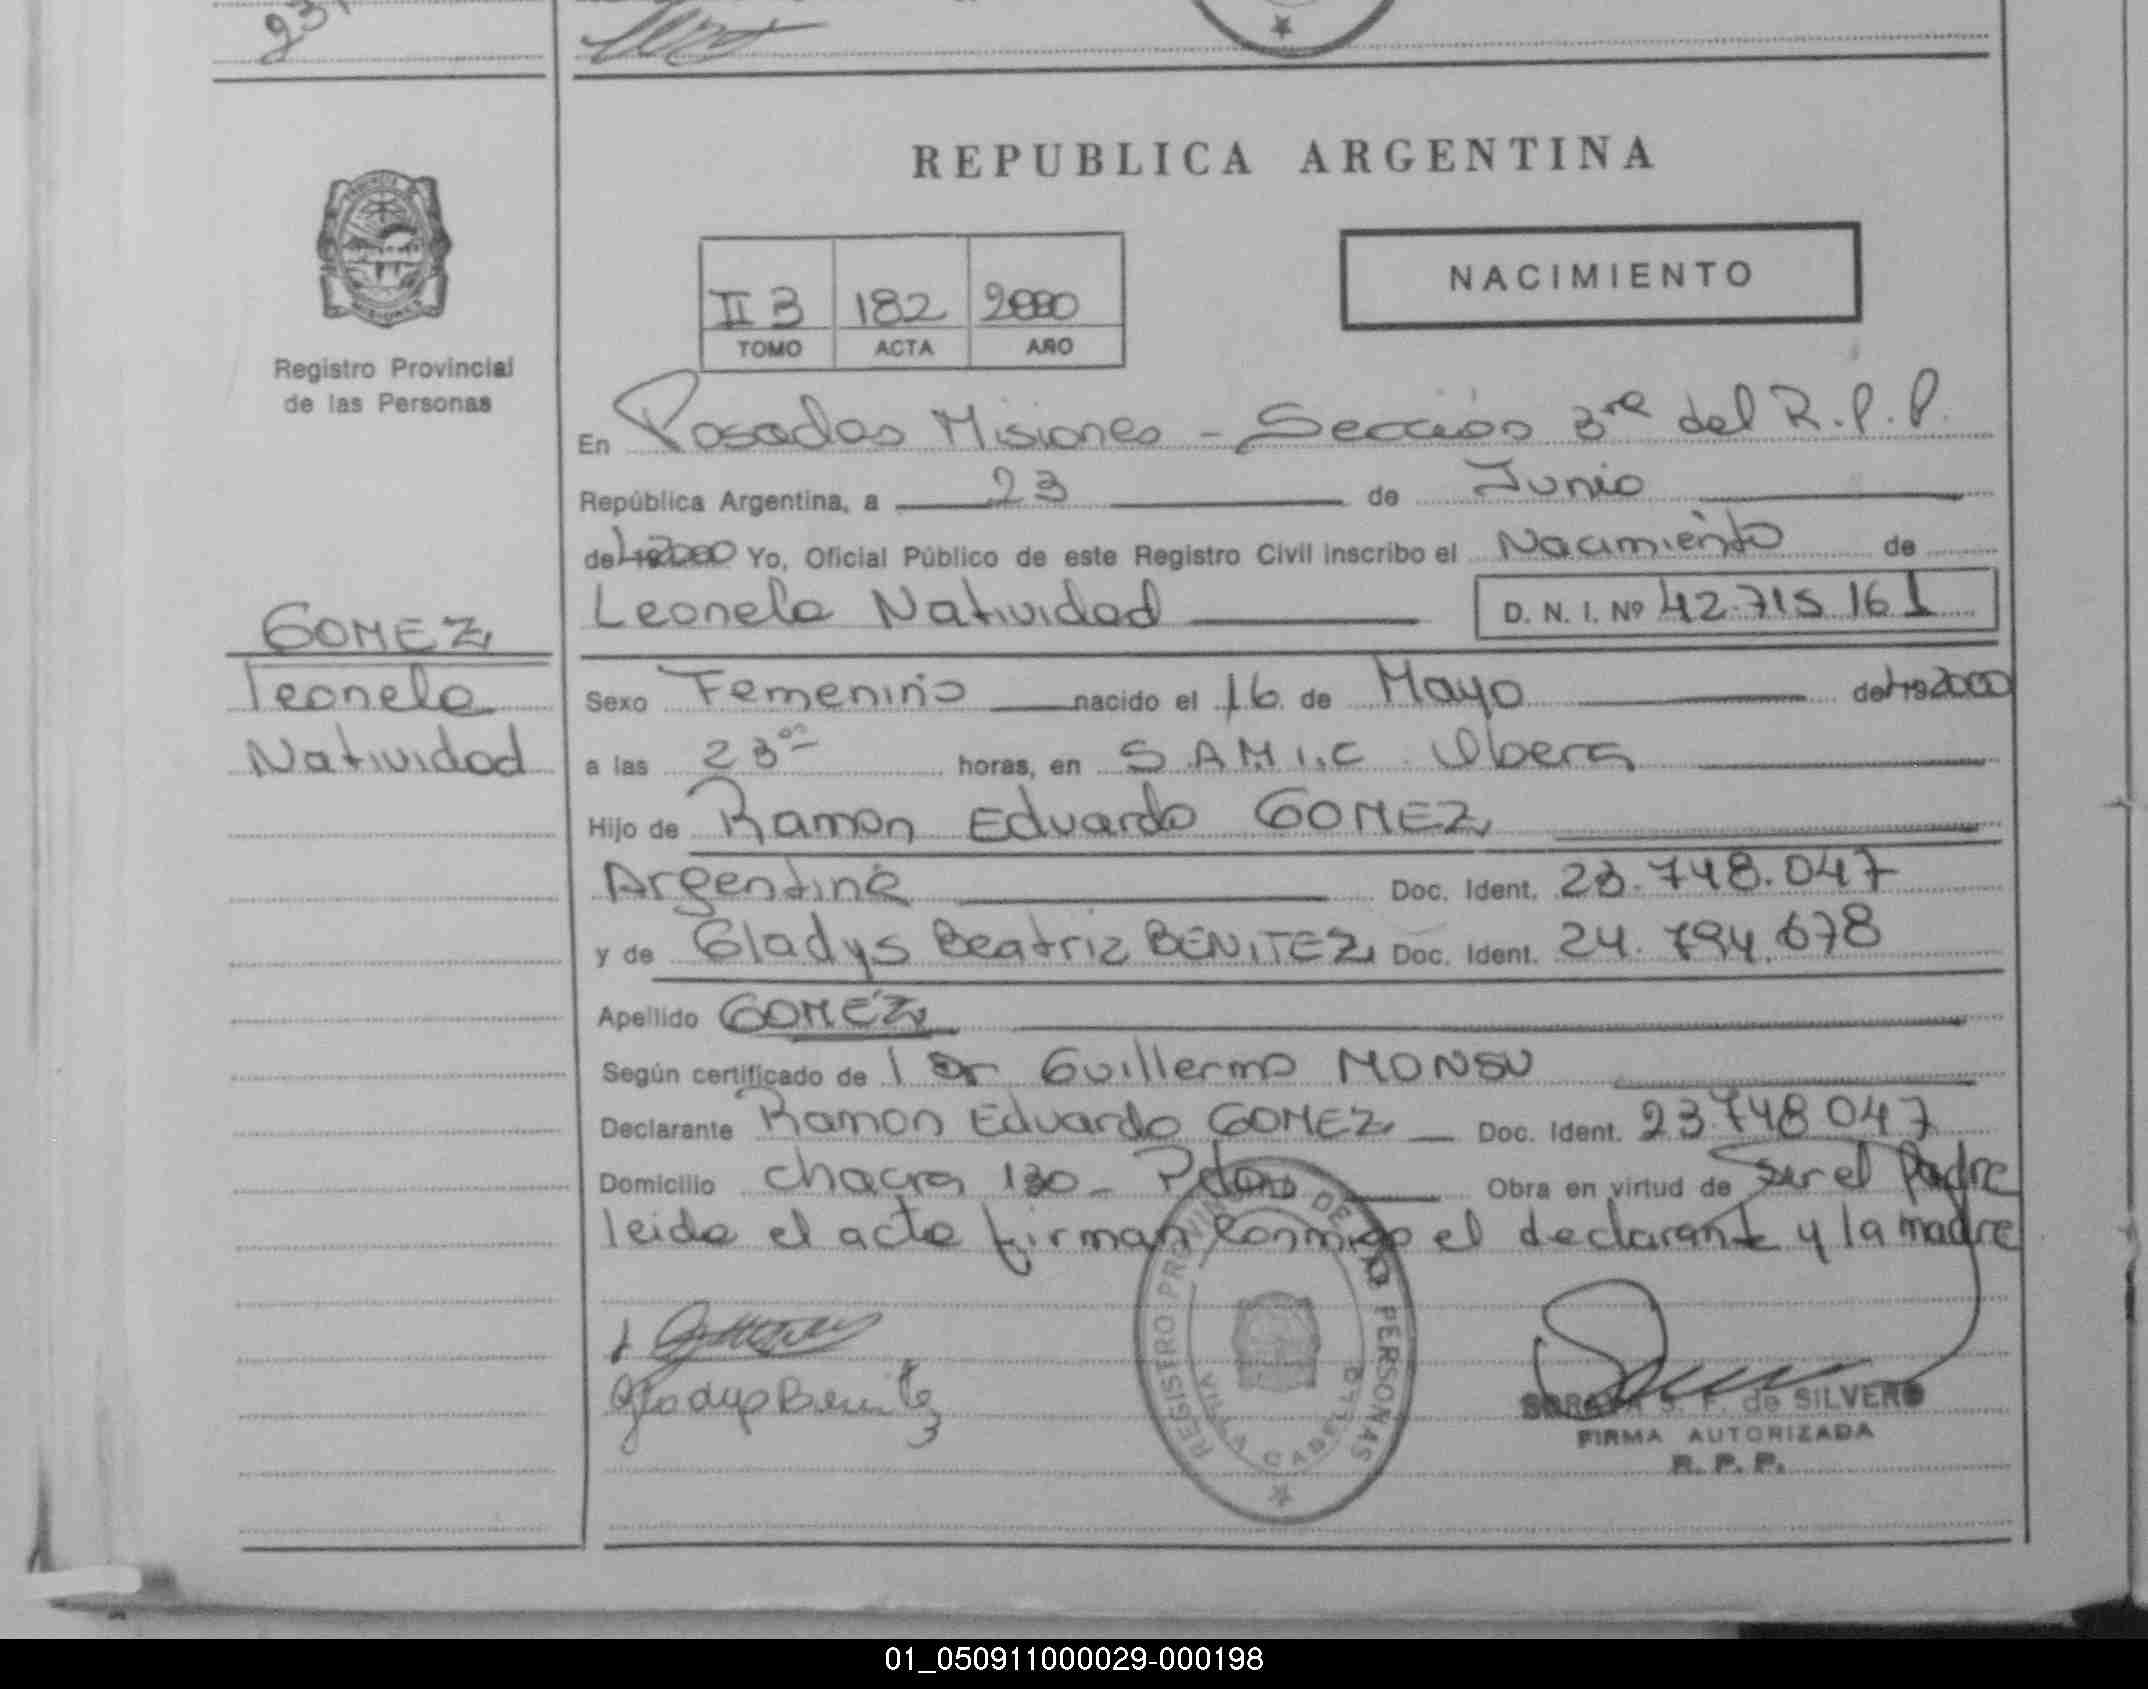 23
REPUBLICA ARGENTINA
NACIMIENTO
II 3 182 2000
TOMO ACTA AÑO
Registro Provincial
de las Personas
En Posadas Misiones - Sección 3ra del R.P.P.
República Argentina, a 23 de Junio
de 2000 Yo, Oficial Público de este Registro Civil inscribo el Nacimiento de
Leonela Natividad D. N. I. Nº 42.715.161
GOMEZ
Leonela
Natividad
Sexo Femenino nacido el 16 de Mayo de 2000
a las 23 horas, en S.A.M.I.C. Obera
Hijo de Ramon Eduardo GOMEZ
Argentina Doc. Ident. 23.748.047
y de Gladys Beatriz BENITEZ Doc. Ident. 24.794.678
Apellido GOMEZ
Según certificado de l Dr Guillermo MONSU
Declarante Ramon Eduardo GOMEZ Doc. Ident. 23.748.047
Domicilio chacra 130 - Pdas Obra en virtud de Ser el Padre
leida el acta firman conmigo el declarante y la madre
Gladys Benitez
REGISTRO PROVINCIAL DE LAS PERSONAS
VILLA CABELLO
S. F. de SILVERO
FIRMA AUTORIZADA
R. P. P.
01_050911000029-000198